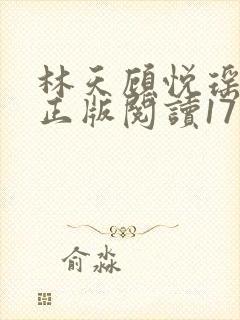 林天顾悦瑶
正版閱讀17
俞淼